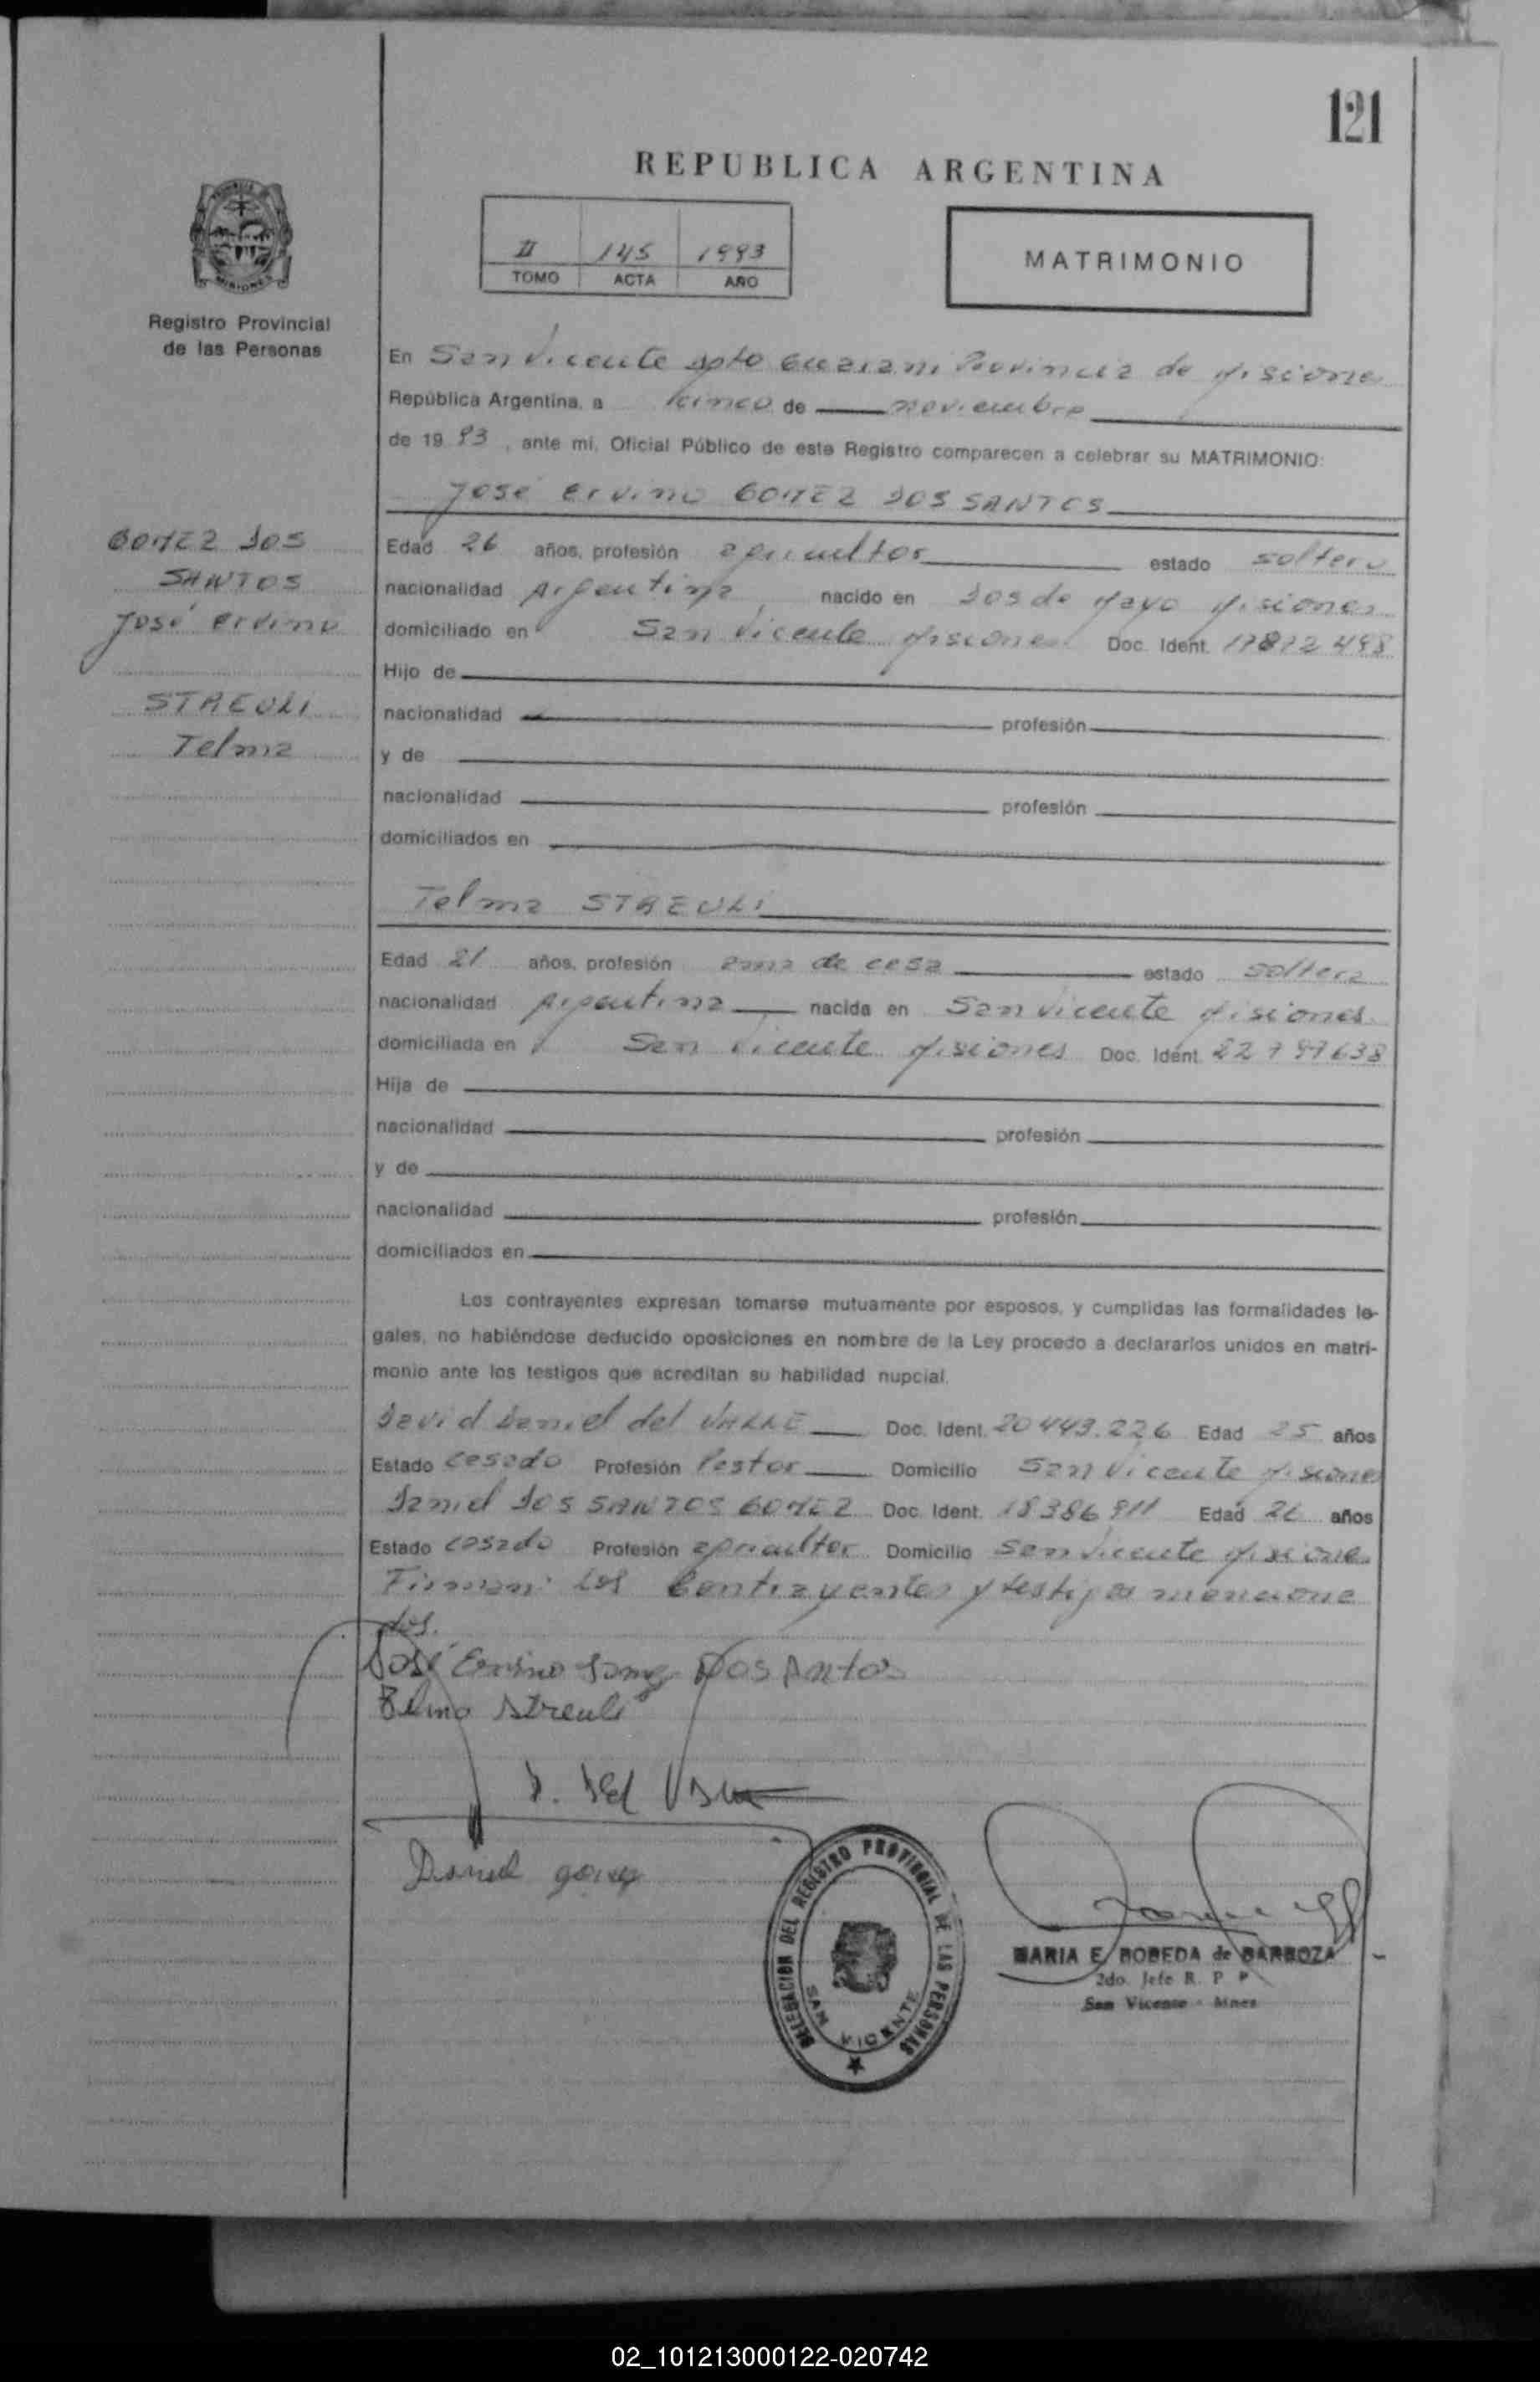 121
REPUBLICA ARGENTINA
II 145 1993
TOMO ACTA AÑO
MATRIMONIO
MISIONES
Registro Provincial
de las Personas
En San Vicente Dpto Guarani Provincia de Misiones
República Argentina, a cinco de noviembre
de 19 93, ante mi, Oficial Público de este Registro comparecen a celebrar su MATRIMONIO:
José Ervino GOMEZ DOS SANTOS
GOMEZ DOS
SANTOS
José Ervino
STREULI
Telma
Edad 26 años, profesión agricultor estado soltero
nacionalidad Argentina, nacido en Dos de Mayo Misiones
domiciliado en San Vicente Misiones Doc. Ident. 17872498
Hijo de
nacionalidad profesión
y de
nacionalidad profesión
domiciliados en
Telma STREULI
Edad 21 años, profesión ama de casa estado soltera
nacionalidad Argentina nacida en San Vicente Misiones
domiciliada en San Vicente Misiones Doc. Ident. 22797638
Hija de
nacionalidad profesión
y de
nacionalidad profesión
domiciliados en
Los contrayentes expresan tomarse mutuamente por esposos, y cumplidas las formalidades le-
gales, no habiéndose deducido oposiciones en nombre de la Ley procedo a declararlos unidos en matri-
monio ante los testigos que acreditan su habilidad nupcial.
David Daniel del VALLE Doc. Ident. 20443.226 Edad 25 años
Estado casado Profesión Pastor Domicilio San Vicente Misiones
Daniel DOS SANTOS GOMEZ Doc. Ident. 18386911 Edad 26 años
Estado casado Profesión agricultor Domicilio San Vicente Misiones
Firman: los Contrayentes y testigos menciona
dos.
José Ervino Gomez Dos Santos
Telma Streuli
D. Del Valle
Daniel gomez
DELEGACION DEL REGISTRO PROVINCIAL DE LAS PERSONAS
SAN VICENTE
MARIA E. ROBEDA de BARBOZA
2do. Jefe R. P. P.
San Vicente - Mnes
02_101213000122-020742